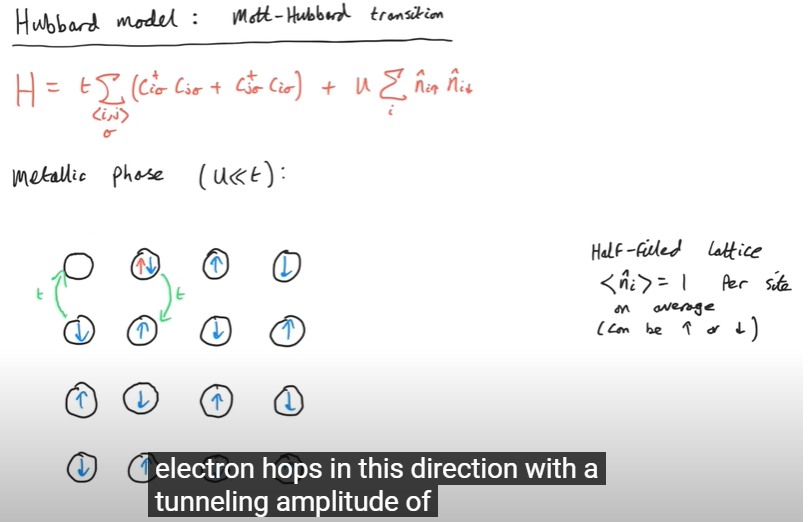 Hubbard model : Mott-Hubbard transition
H = t∑(c†iσ cjσ + c†jσ ciσ) + u ∑ n̂i↑ n̂i↓
<i,j> i
σ
Metallic Phase (U≪t):
↑↓ ↑ ↓
t t
↓ ↑ ↓ ↑
↑ ↓ ↑ ↓
↓ ↑
Half-filled Lattice
<n̂i> = 1 Per site
on average
(can be ↑ or ↓)
electron hops in this direction with a
tunneling amplitude of